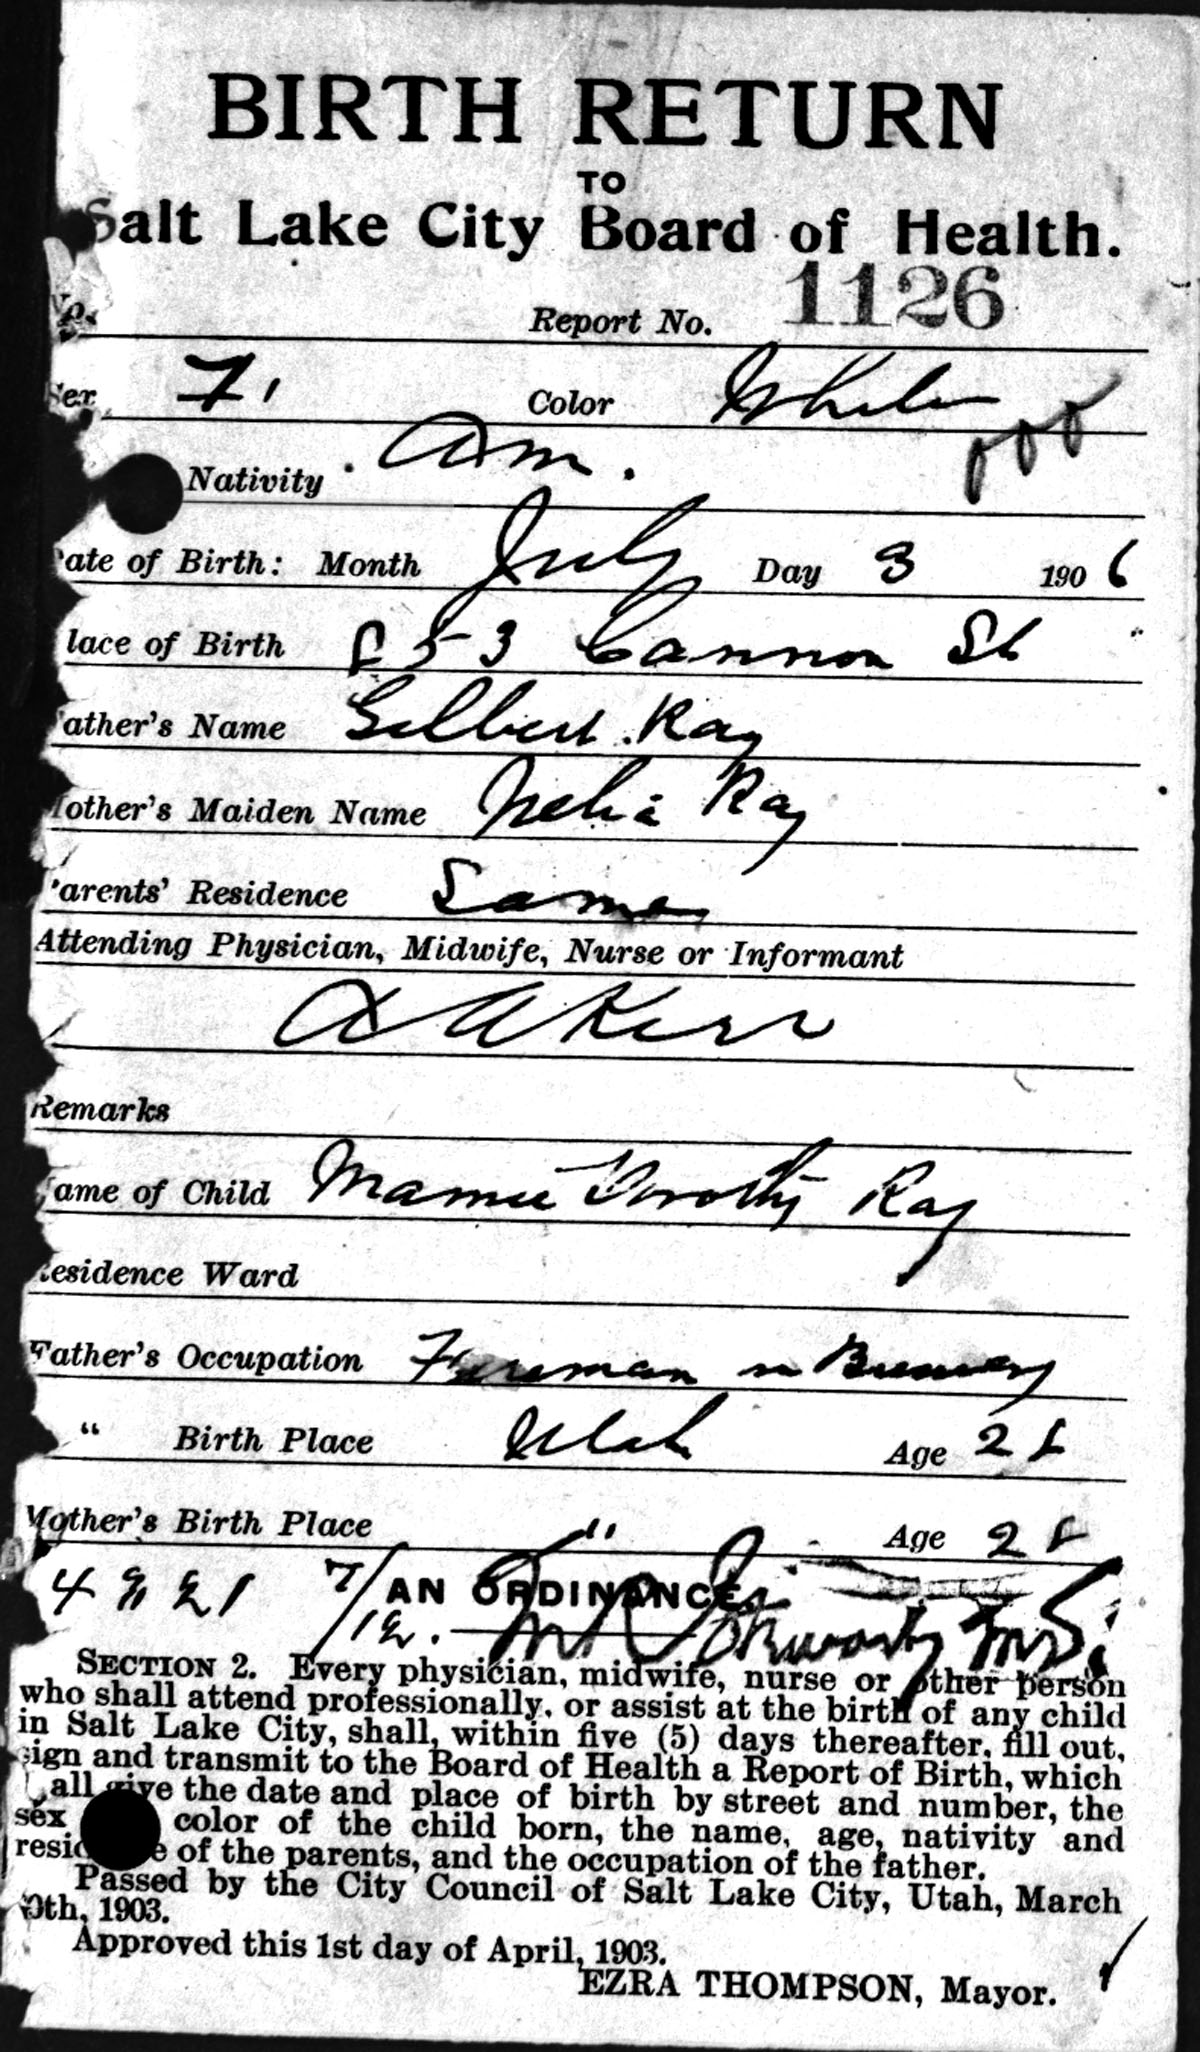 BIRTH RETURN
TO
Salt Lake City Board of Health.
No. Report No. 1126
Sex F. Color White
Nativity Am.
Date of Birth: Month July Day 3 1906
lace of Birth 853 Cannon St
Father's Name Gilbert Ray
Mother's Maiden Name Nelia Ray
Parents' Residence Same
Attending Physician, Midwife, Nurse or Informant
A A Kerr
Remarks
Name of Child Mamie Dorothy Ray
Residence Ward
Father's Occupation Foreman in Brewery
" Birth Place Utah Age 28
Mother's Birth Place " Age 28
7/12.
AN ORDINANCE.
SECTION 2. Every physician, midwife, nurse or other person
who shall attend professionally, or assist at the birth of any child
in Salt Lake City, shall, within five (5) days thereafter, fill out,
sign and transmit to the Board of Health a Report of Birth, which
all give the date and place of birth by street and number, the
sex color of the child born, the name, age, nativity and
residence of the parents, and the occupation of the father.
Passed by the City Council of Salt Lake City, Utah, March
0th, 1903.
Approved this 1st day of April, 1903.
EZRA THOMPSON, Mayor.